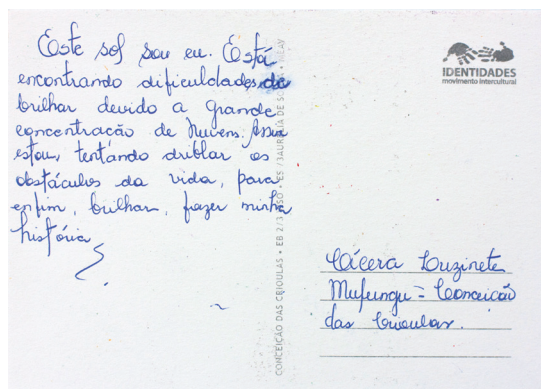 Este sol sou eu. Está
encontrando dificuldades de
brilhar devido a grande
concentração de Nuvens. Assim
estou, tentando driblar os
obstáculos da vida, para
enfim, brilhar, fazer minha
história
IDENTIDADES
movimento intercultural
CONCEIÇÃO DAS CRIOULAS • EB 2/3
Cícera Luzinete
Mufungu = Conceição
das Crioulas.